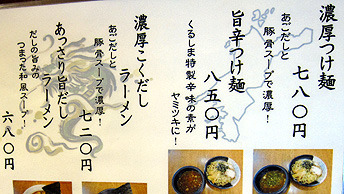 濃厚つけ麺
あごだしと
豚骨スープで濃厚!
七八〇円
旨辛つけ麺
くるまや特製辛味の素が
ヤミツキに!
八五〇円
濃厚こくだし
ラーメン
あごだしと
豚骨スープで濃厚!
七二〇円
あっさり旨だし
ラーメン
だしの旨みの
つまった和風スープ!
六八〇円